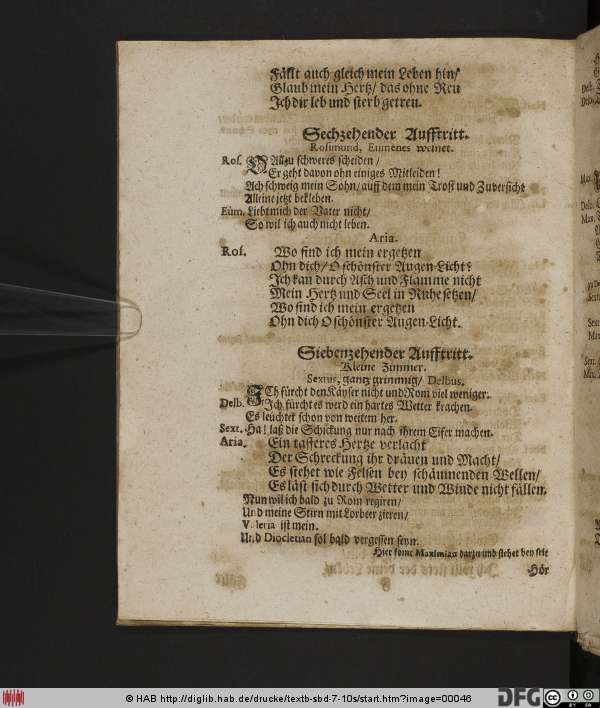 Fällt auch gleich mein Leben hin/
Glaub mein Hertz/ das ohne Reu
Ich dir leb und sterb getreu.
Sechzehender Aufftritt.
Rosimund, Eumenes weinet.
Ros. O Allzu schweres scheiden/
Er geht davon ohn einiges Mitleiden!
Ach schweig mein Sohn/ auff dem mein Trost und Zuversicht
Alleine jetzt bekleben.
Eum. Liebt mich der Vater nicht/
So wil ich auch nicht leben.
Aria.
Ros. Wo find ich mein ergetzen
Ohn dich/ O schönster Augen-Licht?
Ich kan durch Asch und Flamme nicht
Mein Hertz und Seel in Ruhe setzen/
Wo find ich mein ergetzen
Ohn dich O schönster Augen-Licht.
Siebenzehender Aufftritt.
Kleine Zimmer.
Sextus, gantz grimmig/ Delbus.
ICh fürcht den Käyser nicht und Rom viel weniger.
Delb. Ich fürcht es werd ein hartes Wetter krachen.
Es leuchtet schon von weitem her.
Sext. Ha! laß die Schickung nur nach ihrem Eifer machen.
Aria. Ein tapferes Hertze verlacht
Der Schreckung ihr dräuen und Macht/
Es stehet wie Felsen bey schäumenden Wellen/
Es läst sich durch Wetter und Winde nicht fällen.
Nun wil ich bald zu Rom regiren/
Und meine Stirn mit Lorbeer zieren/
Valeria ist mein.
Und Diocletian sol bald vergessen seyn.
Hier komt Maximian darzu und stehet bey seit
Hör
© HAB http://diglib.hab.de/drucke/textb-sbd-7-10s/start.htm?image=00046
DFG
BY SA